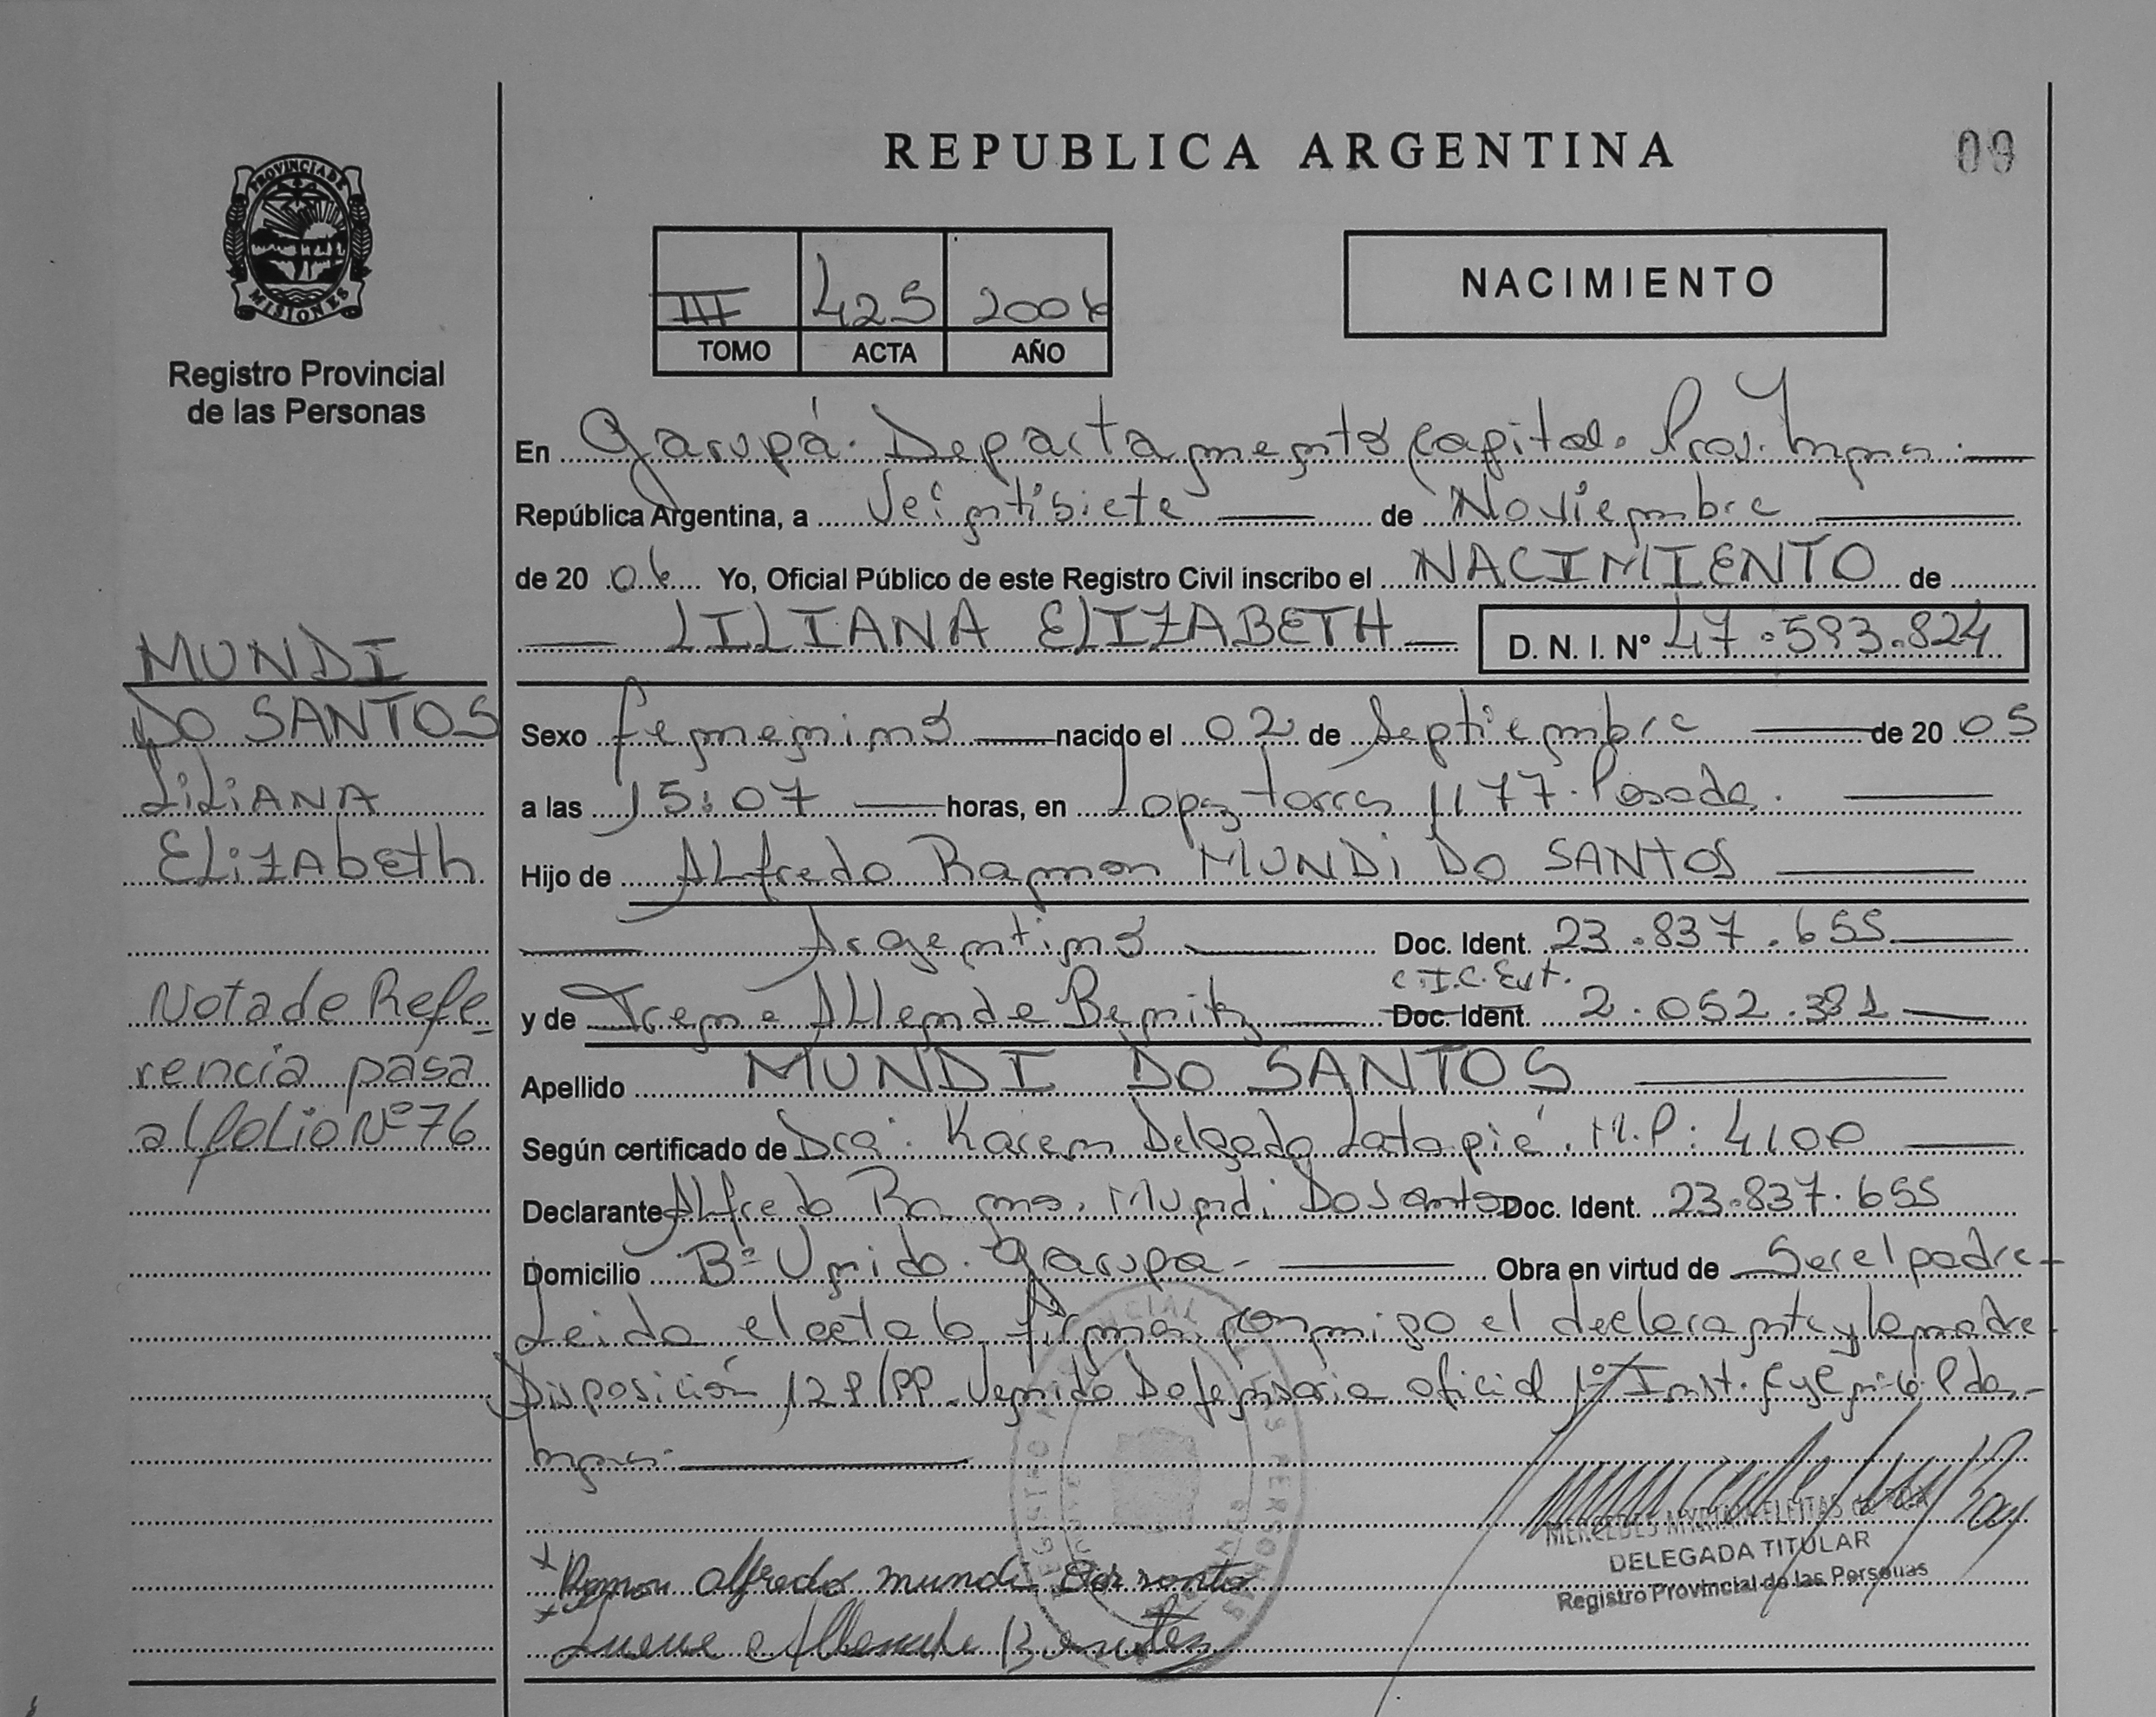 REPUBLICA ARGENTINA
09
PROVINCIA DE
MISIONES
Registro Provincial
de las Personas
III 425 2006
TOMO ACTA AÑO
NACIMIENTO
En Garupá. Departamento Capital. Prov. Mnes.
República Argentina, a Veintisiete de Noviembre
de 20 06 Yo, Oficial Público de este Registro Civil inscribo el NACIMIENTO de
LILIANA ELIZABETH D. N. I. Nº 47.593.824
MUNDI
DO SANTOS
LiLiANA
ELiZAbETh
Nota de Refe-
rencia pasa
al folio Nº 76
Sexo femenino nacido el 02 de Septiembre de 20 05
a las 15:07 horas, en Lopez torres 1177. Posadas.
Hijo de ALfredo Ramon MUNDi DO SANTOS
Argentino Doc. Ident. 23.837.655
C.I.C. Ext.
y de Irene ALLende Benitz Doc. Ident. 2.052.381
Apellido MUNDI DO SANTOS
Según certificado de Dra. Karem Delgado Latapié. M.P: 4100
Declarante ALfredo Ramon Mundi Do Santos Doc. Ident. 23.837.655
Domicilio Bº Unido. Garupa- Obra en virtud de Ser el padre-
Leida el acta la firman conmigo el declarante y la madre-
Disposición 129/99 Defensoria oficial 1º Inst. Pdas-
Mnes.
Ramon alfredo mundi Dos santo
Irene Allende Benitez
MERCEDES MYRIAN
DELEGADA TITULAR
Registro Provincial de las Personas